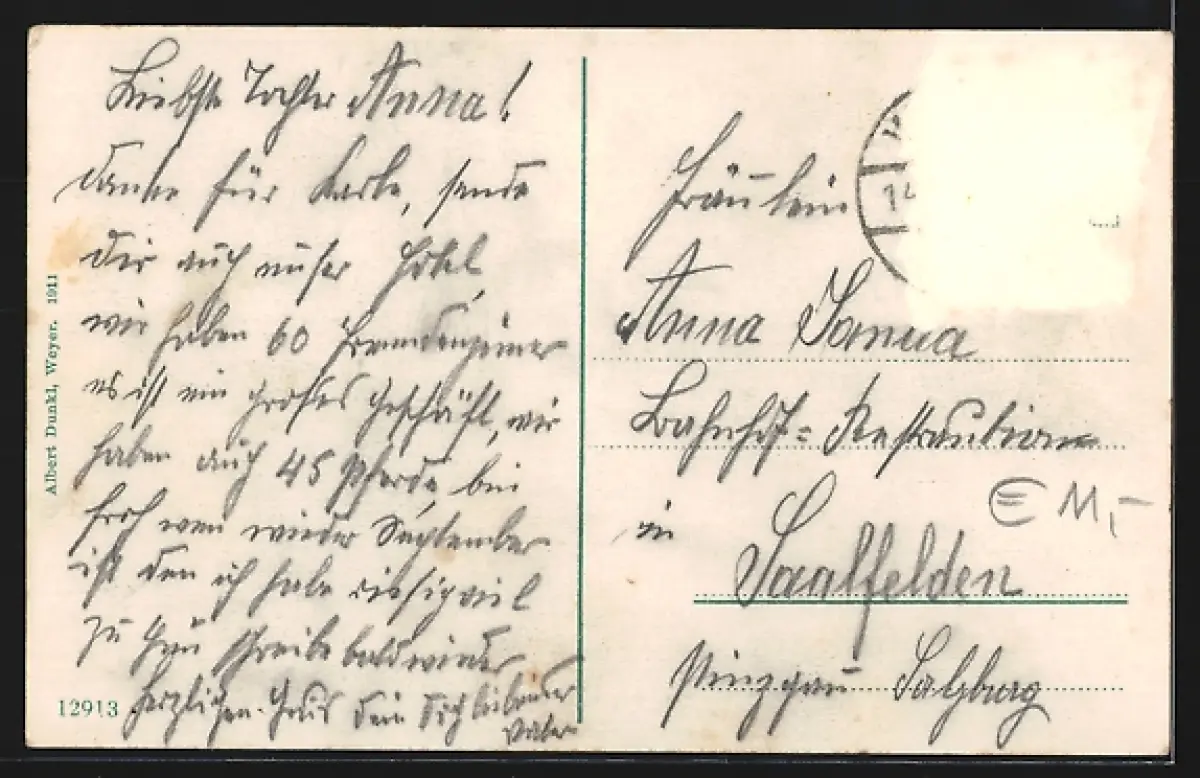 Liebste Tochter Anna!
danke für Karte, sende
dir auch unser Hotel,
wir haben 60 Fremdenzimer
es ist ein großes Geschäft, wir
haben auch 45 Pferde bin
froh wen wieder September
ist den ich habe riesig viel
zu thun schreibe bald wieder
herzlichen Gruß dein dich liebender
Vater
Albert Dunkl, Weyer. 1911
12913
Fräulein
Anna
Bahnhof-Restaution
in
Saalfelden
Pinzgau Salzburg
€ 11,-